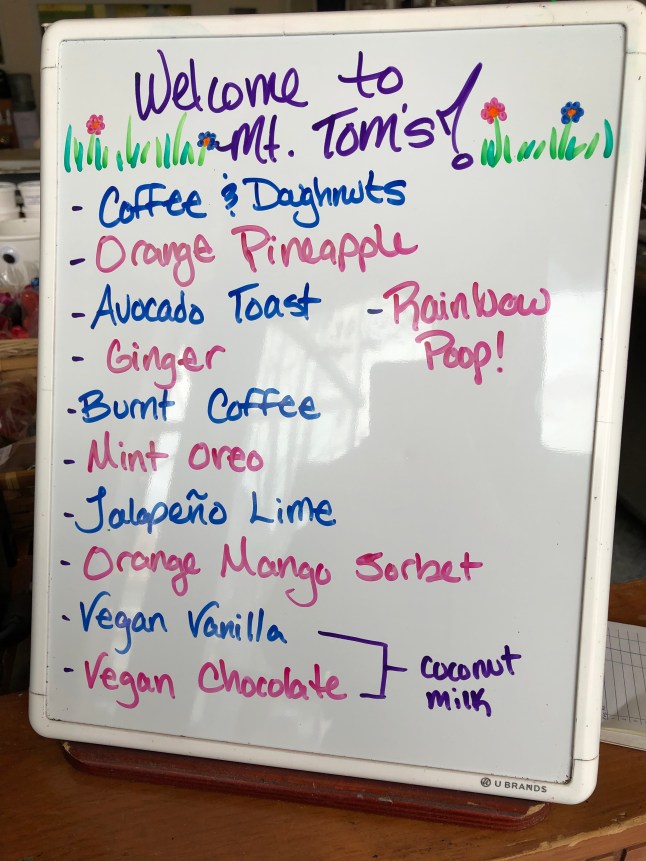 Welcome to
Mt. Tom's!
- Coffee & Doughnuts
- Orange Pineapple
- Avocado Toast
- Ginger
- Burnt Coffee
- Mint Oreo
- Jalapeño Lime
- Orange Mango Sorbet
- Vegan Vanilla
- Vegan Chocolate
coconut
milk
- Rainbow
Poop!
U BRANDS